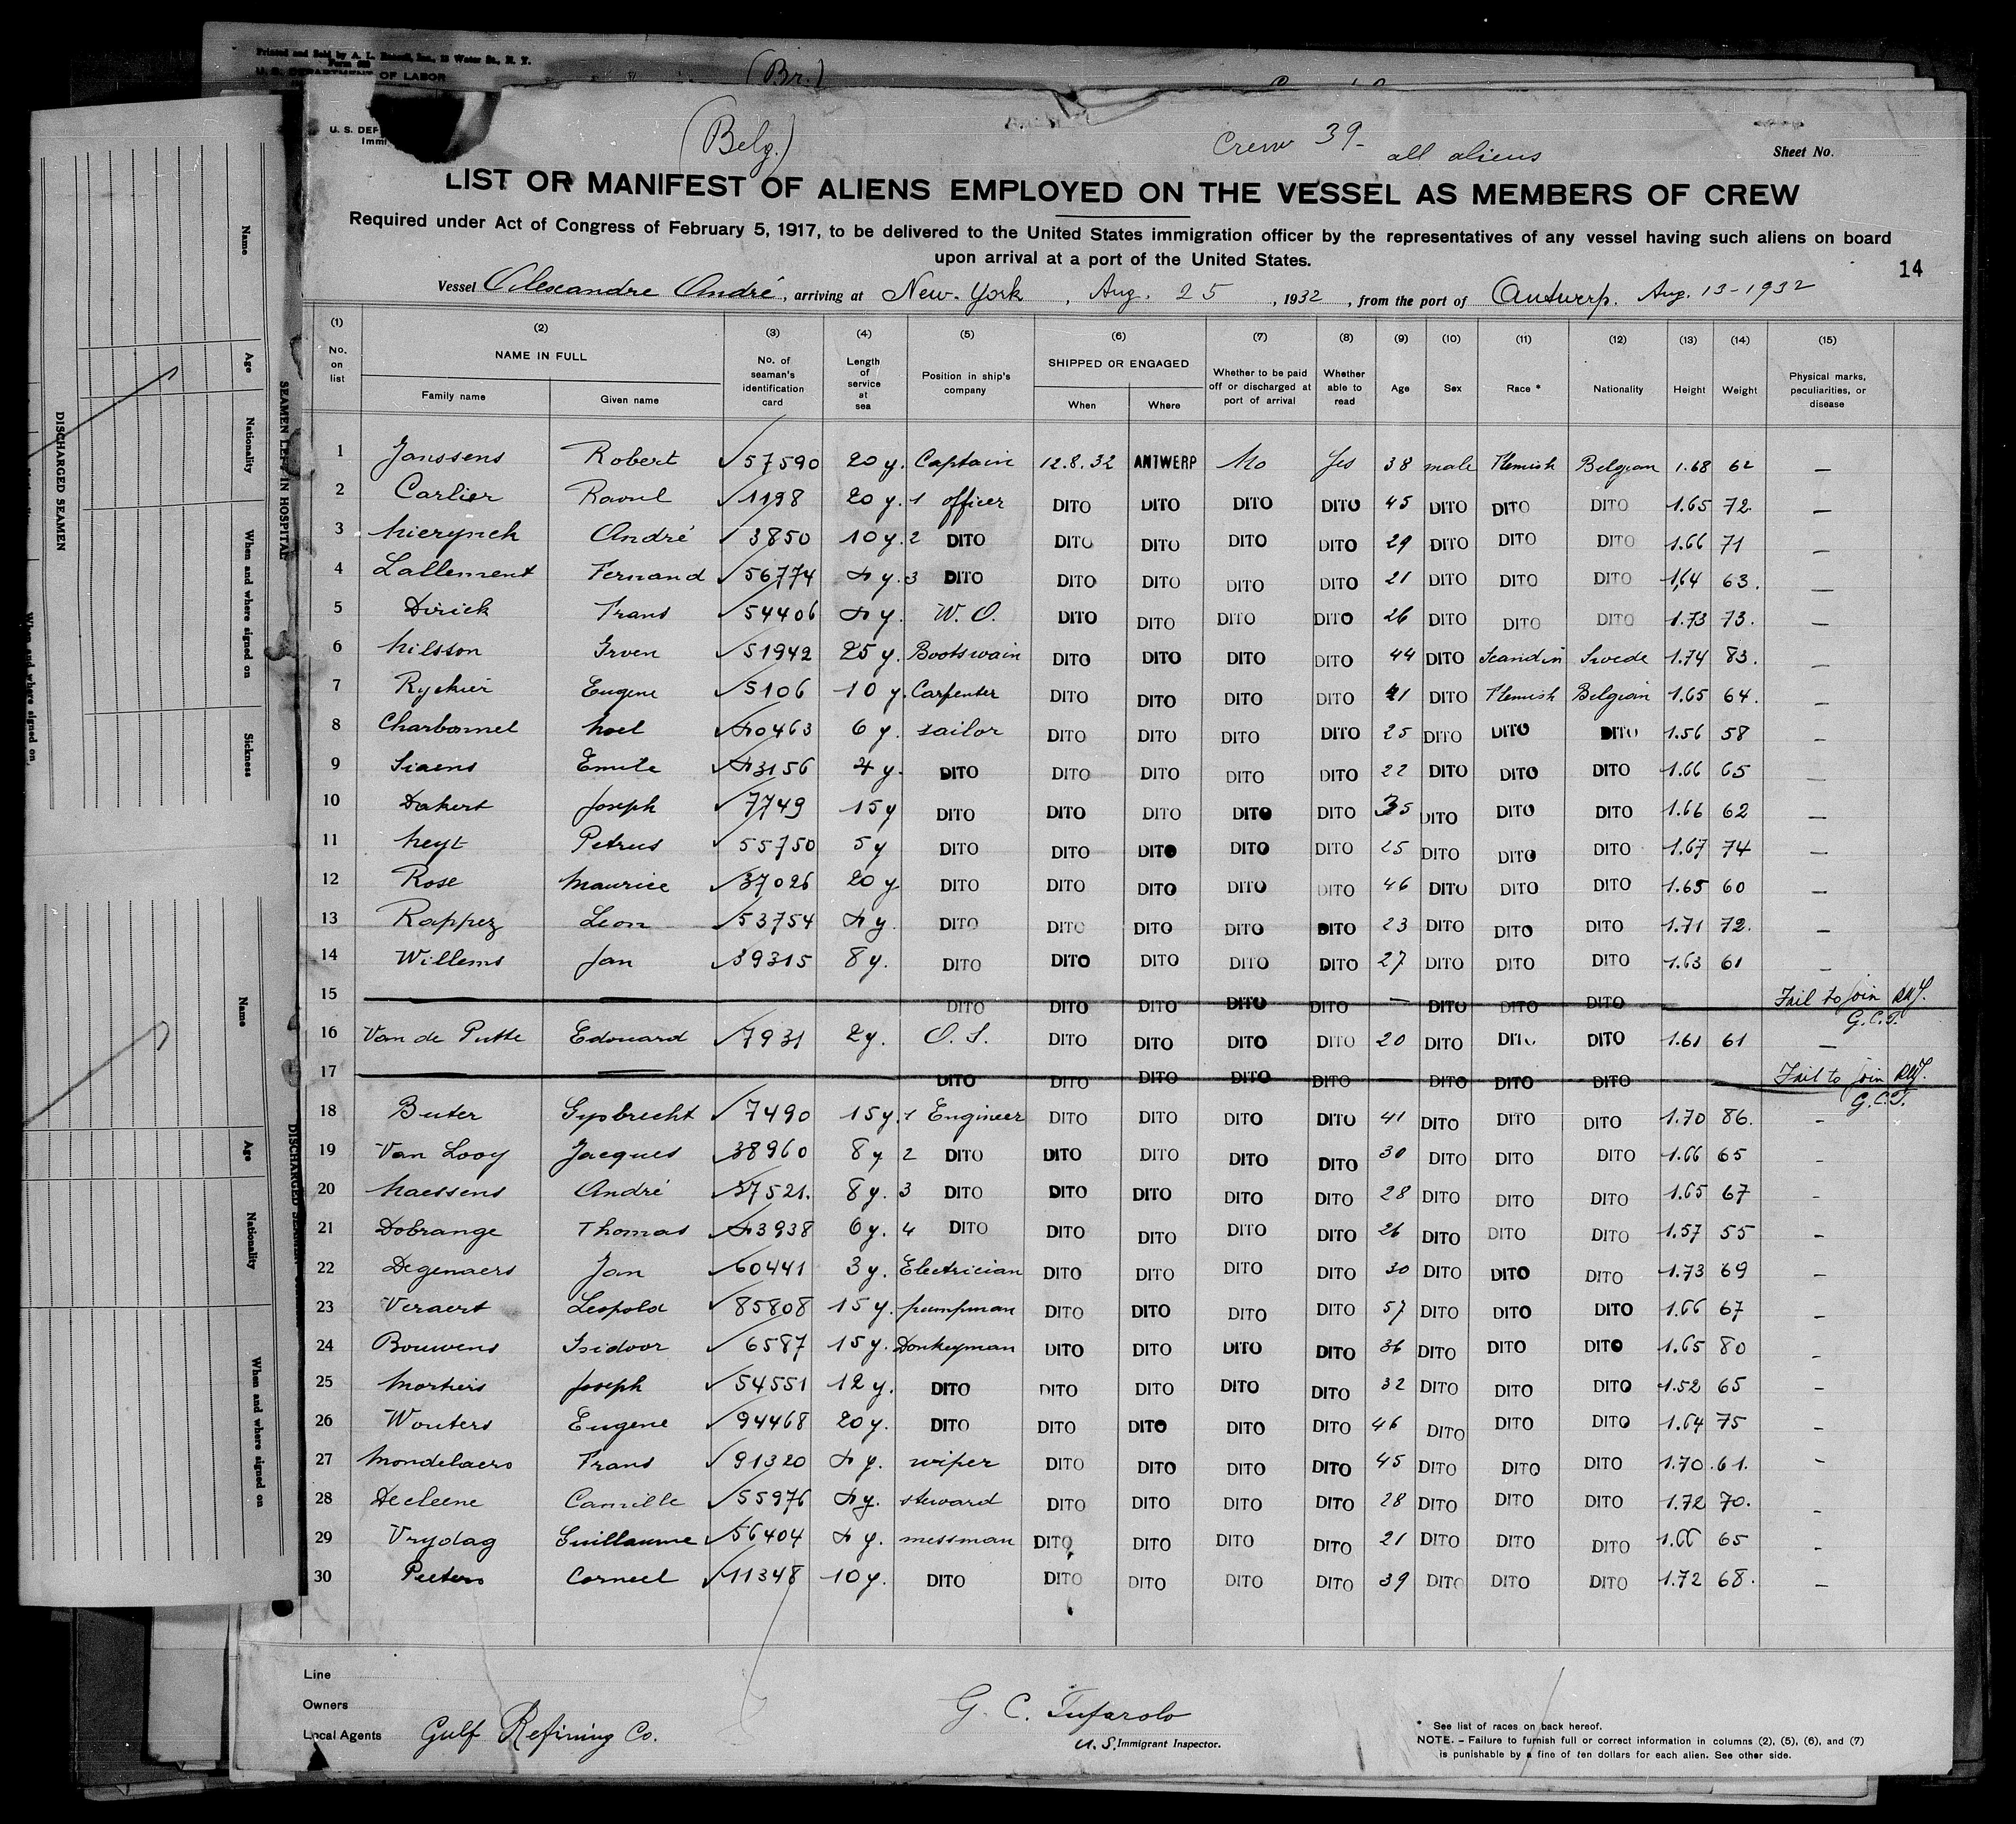 Printed and Sold by A. L. Russell, Inc., 12 Water St., N. Y.
U. S. DEPARTMENT OF LABOR
(Br.)
U. S. DEP
Immi
(Belg.)
Crew 39- all aliens
Sheet No.
LIST OR MANIFEST OF ALIENS EMPLOYED ON THE VESSEL AS MEMBERS OF CREW
Required under Act of Congress of February 5, 1917, to be delivered to the United States immigration officer by the representatives of any vessel having such aliens on board
upon arrival at a port of the United States.
14
Vessel Alexandre André, arriving at New-York, Aug. 25, 1932, from the port of Antwerp. Aug. 13-1932
(1) (2) (3) (4) (5) (6) (7) (8) (9) (10) (11) (12) (13) (14) (15)
No. on list NAME IN FULL Family name Given name No. of seaman's identification card Length of service at sea Position in ship's company SHIPPED OR ENGAGED When Where Whether to be paid off or discharged at port of arrival Whether able to read Age Sex Race * Nationality Height Weight Physical marks, peculiarities, or disease
1 Janssens Robert √57590 20 y. Captain 12.8.32 ANTWERP No Yes 38 male Flemish Belgian 1.68 62 —
2 Carlier Raoul √1198 20 y. 1 officer DITO DITO DITO DITO 45 DITO DITO DITO 1.65 72 —
3 Mierynck André √3850 10 y. 2 DITO DITO DITO DITO DITO 29 DITO DITO DITO 1.66 71 —
4 Lallement Fernand √56774 4 y. 3 DITO DITO DITO DITO DITO 21 DITO DITO DITO 1,64 63. —
5 Dirick Frans √54406 4 y. W. O. DITO DITO DITO DITO 26 DITO DITO DITO 1.73 73. —
6 Nilsson Irven √51942 25 y. Bootswain DITO DITO DITO DITO 44 DITO Scandin Swede 1.74 83. —
7 Ryckier Eugene √5106 10 y. Carpenter DITO DITO DITO DITO 41 DITO Flemish Belgian 1.65 64. —
8 Charbonnel Noel √40463 6 y. sailor DITO DITO DITO DITO 25 DITO DITO DITO 1.56 58 —
9 Siaens Emile √43156 4 y. DITO DITO DITO DITO DITO 22 DITO DITO DITO 1.66 65 —
10 Dakert Joseph √7749 15 y DITO DITO DITO DITO DITO 35 DITO DITO DITO 1.66 62 —
11 Neyt Petrus √55750 5 y DITO DITO DITO DITO DITO 25 DITO DITO DITO 1.67 74 —
12 Rose Maurice √37026 20 y DITO DITO DITO DITO DITO 46 DITO DITO DITO 1.65 60 —
13 Rappez Leon √53754 4 y. DITO DITO DITO DITO DITO 23 DITO DITO DITO 1.71 72. —
14 Willems Jan √39315 8 y. DITO DITO DITO DITO DITO 27 DITO DITO DITO 1.63 61 —
15 — — DITO DITO DITO DITO DITO — DITO DITO DITO Fail to join
G.C.T.
16 Van de Putte Edouard √7931 2 y. O. S. DITO DITO DITO DITO 20 DITO DITO DITO 1.61 61 —
17 — — DITO DITO DITO DITO DITO — DITO DITO DITO Fail to join
G.C.T.
18 Buter Gysbrecht √7490 15 y. 1 Engineer DITO DITO DITO DITO 41 DITO DITO DITO 1.70 86. -
19 Van Looy Jacques √38960 8 y 2 DITO DITO DITO DITO DITO 30 DITO DITO DITO 1.66 65 -
20 Maessens André √37521. 8 y. 3 DITO DITO DITO DITO DITO 28 DITO DITO DITO 1.65 67 -
21 Dobrange Thomas √43938 6 y. 4 DITO DITO DITO DITO DITO 26 DITO DITO DITO 1.57 55 -
22 Degenaers Jan √60441 3 y. Electrician DITO DITO DITO DITO 30 DITO DITO DITO 1.73 69 -
23 Veraert Leopold √85808 15 y. pumpman DITO DITO DITO DITO 57 DITO DITO DITO 1.66 67 -
24 Bouwens Isidoor √6587 15 y. Donkeyman DITO DITO DITO DITO 36 DITO DITO DITO 1.65 80 -
25 Mortiers Joseph √54551 12 y. DITO DITO DITO DITO DITO 32 DITO DITO DITO 1.52 65 -
26 Wouters Eugene √94468 20 y. DITO DITO DITO DITO DITO 46 DITO DITO DITO 1.64 75 -
27 Mondelaers Frans √91320 4 y. wiper DITO DITO DITO DITO 45 DITO DITO DITO 1.70 61. -
28 Decleene Camille √55976 4 y. steward DITO DITO DITO DITO 28 DITO DITO DITO 1.72 70. -
29 Vrydag Guillaume √56404 4 y. messman DITO DITO DITO DITO 21 DITO DITO DITO 1.66 65 -
30 Peeters Corneel √11348 10 y. DITO DITO DITO DITO DITO 39 DITO DITO DITO 1.72 68. —
Line
Owners
Local Agents Gulf Refining Co.
G. C. Tufarolo
U. S. Immigrant Inspector.
* See list of races on back hereof.
NOTE. – Failure to furnish full or correct information in columns (2), (5), (6), and (7)
is punishable by a fine of ten dollars for each alien. See other side.
SEAMEN LEFT IN HOSPITAL
Name Age Nationality When and where signed on Sickness
DISCHARGED SEAMEN
When and where signed on,
Name Age Nationality When and where signed on